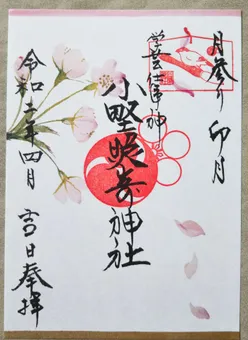 月参り 卯月
学芸仕事神
小野照崎神社
令和 年四月 吉日奉拝